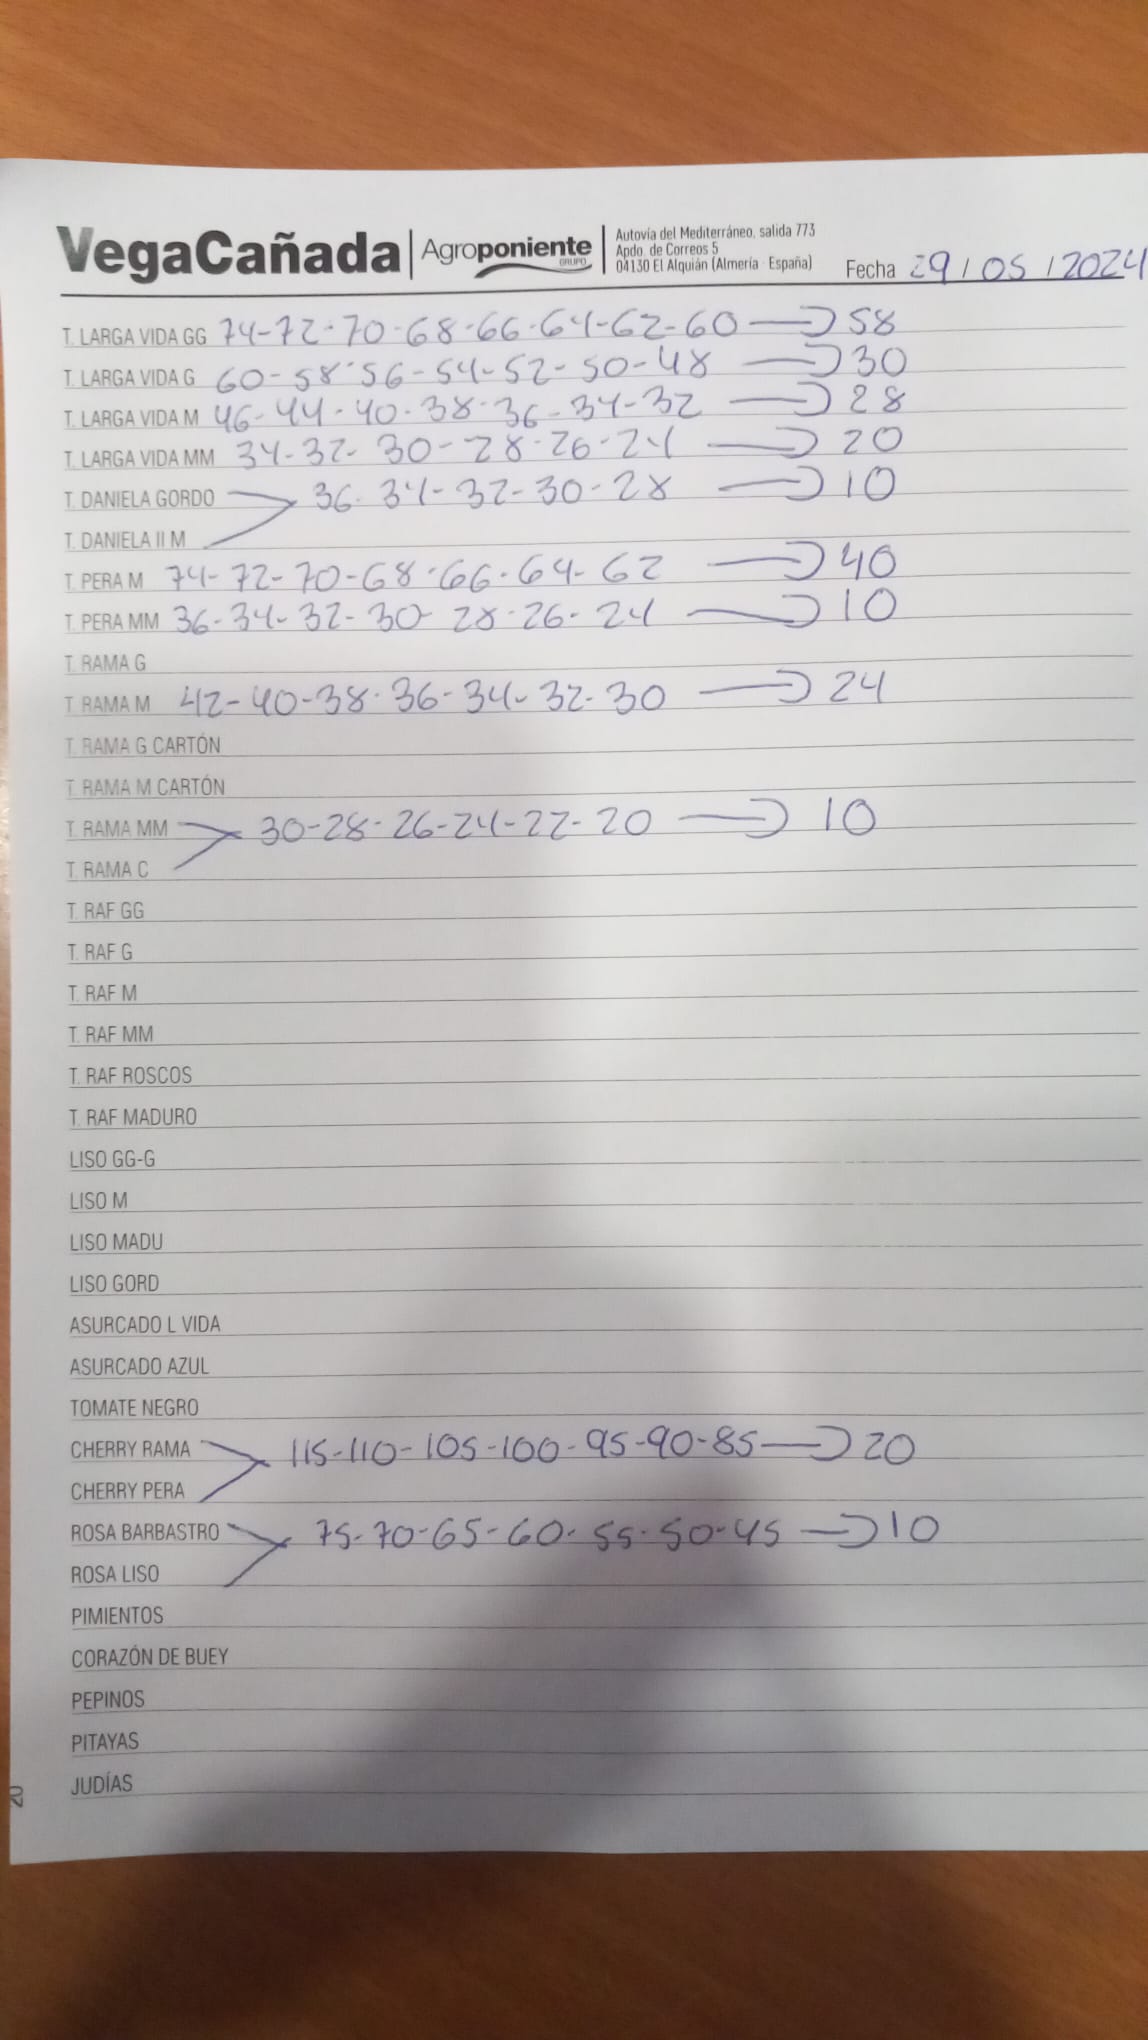 VegaCañada | Agroponiente GRUPO
Autovía del Mediterráneo, salida 773
Apdo. de Correos 5
04130 El Alquián (Almería - España)
Fecha 29 / 05 / 2024
T. LARGA VIDA GG 74-72-70-68-66-64-62-60 → 58
T. LARGA VIDA G 60-58-56-54-52-50-48 → 30
T. LARGA VIDA M 46-44-40-38-36-34-32 → 28
T. LARGA VIDA MM 34-32-30-28-26-24 → 20
T. DANIELA GORDO 36-34-32-30-28 → 10
T. DANIELA II M
T. PERA M 74-72-70-68-66-64-62 → 40
T. PERA MM 36-34-32-30-28-26-24 → 10
T. RAMA G
T. RAMA M 42-40-38-36-34-32-30 → 24
T. RAMA G CARTÓN
T. RAMA M CARTÓN
T. RAMA MM 30-28-26-24-22-20 → 10
T. RAMA C
T. RAF GG
T. RAF G
T. RAF M
T. RAF MM
T. RAF ROSCOS
T. RAF MADURO
LISO GG-G
LISO M
LISO MADU
LISO GORD
ASURCADO L VIDA
ASURCADO AZUL
TOMATE NEGRO
CHERRY RAMA 115-110-105-100-95-90-85 → 20
CHERRY PERA
ROSA BARBASTRO 75-70-65-60-55-50-45 → 10
ROSA LISO
PIMIENTOS
CORAZÓN DE BUEY
PEPINOS
PITAYAS
JUDÍAS
20